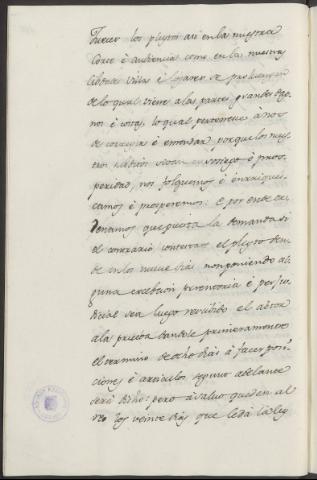 Fueren los pleytos asi en la nuestra
Corte é audiencia como en la nuestras
cibdades villas é lugares se prolongan
de lo qual viene a las partes grandes daños
nos é costas, lo qual pertenesce á nos
de corregir é enmendar, porque los nues
tros subditos vivan en sosiego é pros-
peridad, nos folguemos é enrriques-
camos é prosperemos: é por ende or-
denamos que puesta la demanda si
el contrario contestare el pleyto den-
de en los nueve dias non poniendo al-
guna excebcion perentoria é perju-
dicial sea luego rescibido el abtor
a la prueba dandole primeramente
el termino de ocho dias á facer posi-
ciones é articulos segunt adelante
será dicho: pero á salvo queden al
reo los veinte dias que le dá la ley